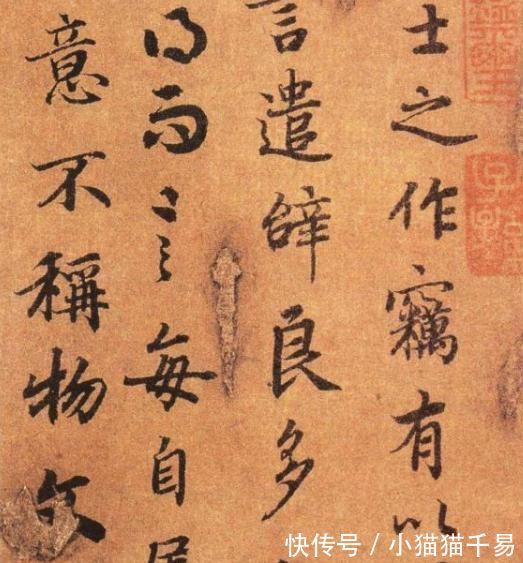 士之作竊有以
言遣辭良多
得而言每自
意不稱物文
快传号 / 小猫猫千易